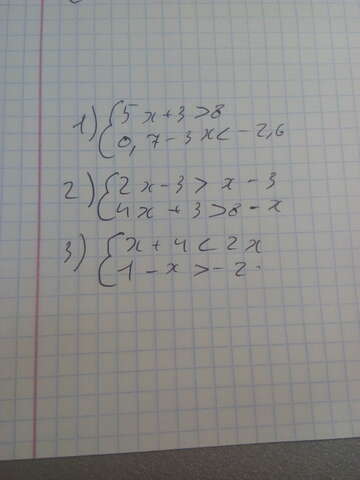 1) { 5x+3>8
0,7-3x<-2,6
2) { 2x-3>x-3
4x+3>8-x
3) { x+4<2x
1-x>-2.